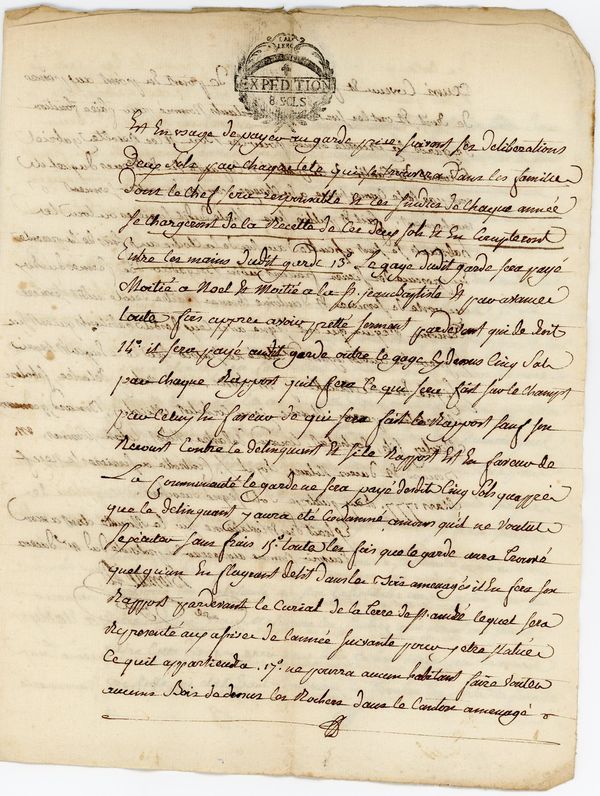 CAL
LERG
EXPEDITION
8 SOLS
Est En usage de payer au garde prise suivant les deliberations
Deux sols par Chaque tete qui se trouvera dans les famille
Dont le Chef sera responsable et les sindics de Chaque année
se Chargeront de la Recette de Ces deux sols et En Compteront
Entre les mains dudit garde 13º. Le gage dudit garde sera payé
Moitié a Noel et Moitié a la st jean Baptiste et par avance
toute fois appres avoir prette serment pardevant qui de droit
14º. il sera payé audit garde outre le gage Cy dessus Cinq Sols
par Chaque Rapport quil fera Ce qui sera fait sur le Champt
par Celuy En faveur de qui sera fait le Rapport sauf son
Recourt Contre le delinquent et si le Rapport Est En faveur de
La Communauté le garde ne sera payé desdit Cinq Sols quappres
que le delinquant y aura été Condamné amoins quil ne Voulut
sexecuter sans frais 15º. toute les fois que le garde aura trouvé
quelqu'un En flagrant delit dans les Bois amenagé il En fera son
Rapport pardevant le Curial de la terre de st. andré lequel sera
Representé aux assises de lannée suivante pour y etre statué
Ce quil appartiendra. 17º. ne pourra aucun habitant faire Rouler
aucuns Bois dedessus les Rochers dans le Canton amenagé